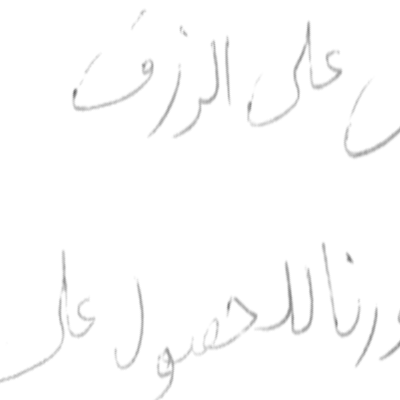 على الرزق
ورنا للحصول على